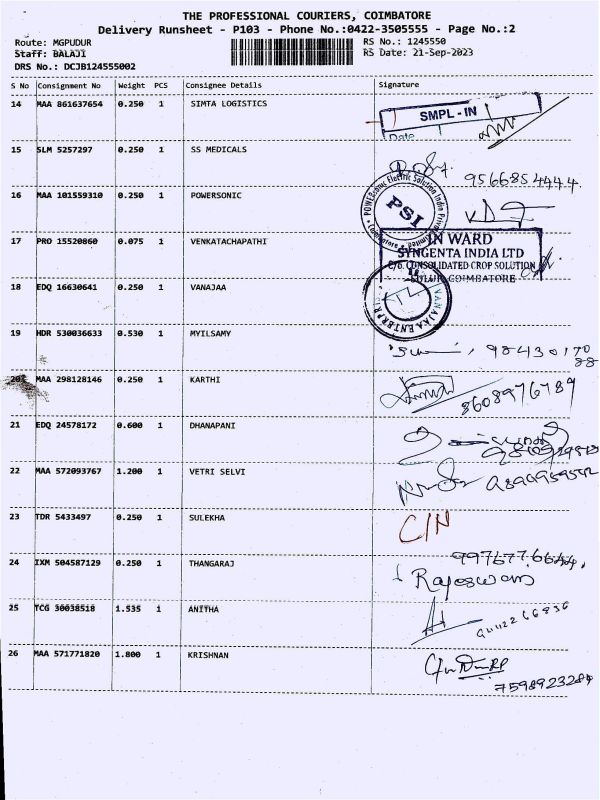 THE PROFESSIONAL COURIERS, COIMBATORE
Delivery Runsheet - P103 - Phone No.:0422-3505555 - Page No.:2
Route: MGPUDUR RS No.: 1245550
Staff: BALAJI RS Date: 21-Sep-2023
DRS No.: DCJB124555002
S No Consignment No Weight PCS Consignee Details Signature
14 MAA 861637654 0.250 1 SIMTA LOGISTICS
SMPL - IN
Date
15 SLM 5257297 0.250 1 SS MEDICALS
9566854444
16 MAA 101559310 0.250 1 POWERSONIC
PSI
17 PRO 15520860 0.075 1 VENKATACHAPATHI
IN WARD
SYNGENTA INDIA LTD
C/o. CONSOLIDATED CROP SOLUTION
SULUR COIMBATORE
18 EDQ 16630641 0.250 1 VANAJAA
VANAJAA ENTERPRI
19 HDR 530036633 0.530 1 MYILSAMY
98430170
88
20 MAA 298128146 0.250 1 KARTHI
8608976789
21 EDQ 24578172 0.600 1 DHANAPANI
22 MAA 572093767 1.200 1 VETRI SELVI
23 TDR 5433497 0.250 1 SULEKHA
C/N
24 IXM 504587129 0.250 1 THANGARAJ
Rajeswari
25 TCG 30038518 1.535 1 ANITHA
26 MAA 571771820 1.800 1 KRISHNAN
7598923284